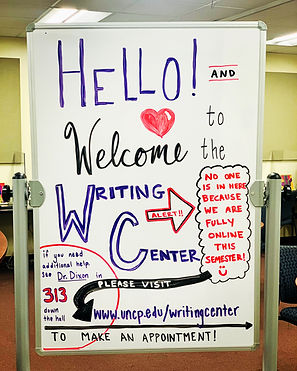 HELLO! AND
Welcome to
the
WRITING
CENTER
ALERT!!
NO ONE
IS IN HERE
BECAUSE
WE ARE
FULLY
ONLINE
THIS
SEMESTER!
if you need
additional help
see Dr. Dixon in
313
down
the hall
PLEASE VISIT
www.uncp.edu/writingcenter
TO MAKE AN APPOINTMENT!